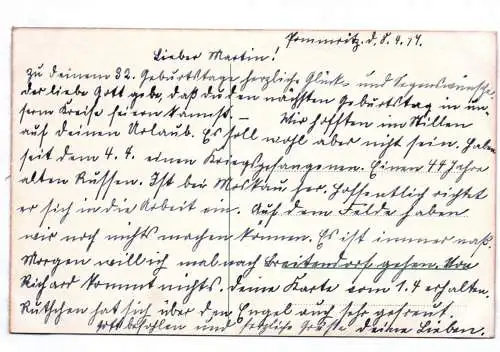 Pommritz. d. 8. 4. 17.
Lieber Martin!
zu deinem 32. Geburtstage herzliche Glück- und Segenswünsche.
der liebe Gott gebe, daß du den nächsten Geburtstag in un-
serm Kreise feiern kannst. – Wir hofften im Stillen
auf deinen Urlaub. Es soll wohl aber nicht sein. Haben
seit dem 4. 4. einen Kriegsgefangenen. Einen 44 Jahre
alten Russen. Ist bei Moskau her. Hoffentlich richtet
er sich in die Arbeit ein. Auf dem Felde haben
wir noch nichts machen können. Es ist immer naß.
Morgen will ich mal nach Breitendorf gehen. Von
Richard kommt nichts. deine Karte vom 1.4 erhalten.
hat sich über den Engel auch sehr gefreut.
Gott befohlen und herzliche Grüße deine Lieben.